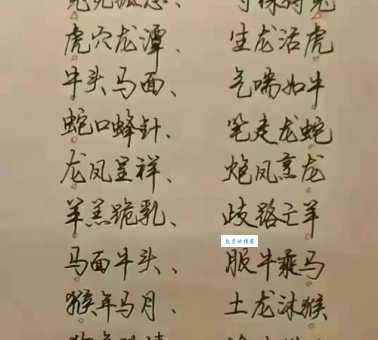 虎穴龙潭、 生龙活虎
牛头马面、 气喘如牛
蛇口蜂针、 笔走龙蛇
龙凤呈祥、 炮凤烹龙
羊羔跪乳、 歧路亡羊
马面牛头、 服牛乘马
猴年马月、 土龙沐猴